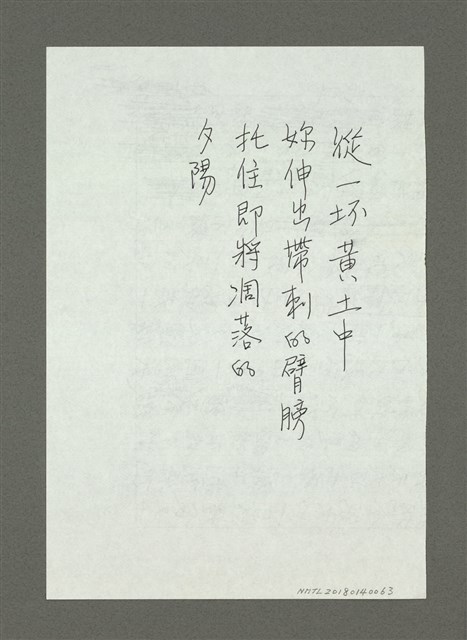 從一坯黃土中
妳伸出帶刺的臂膀
托住即將凋落的
夕陽
NMTL20180140063